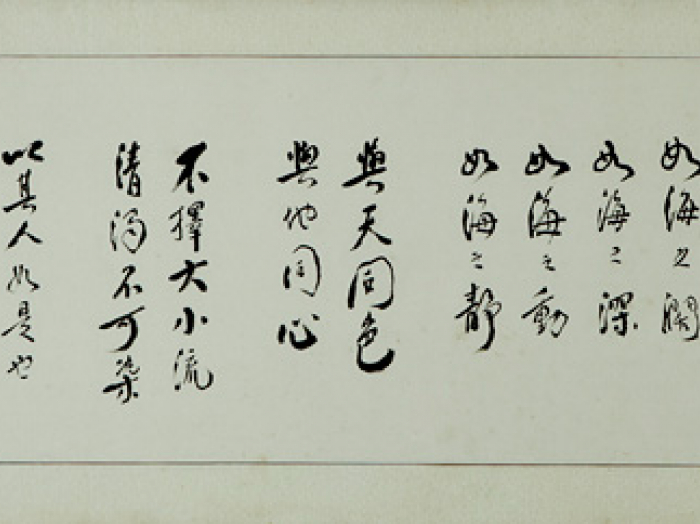 如海之闊
如海之深
如海之動
如海之靜
與天同色
與地同心
不擇大小流
清濁不可染
以其人如是也